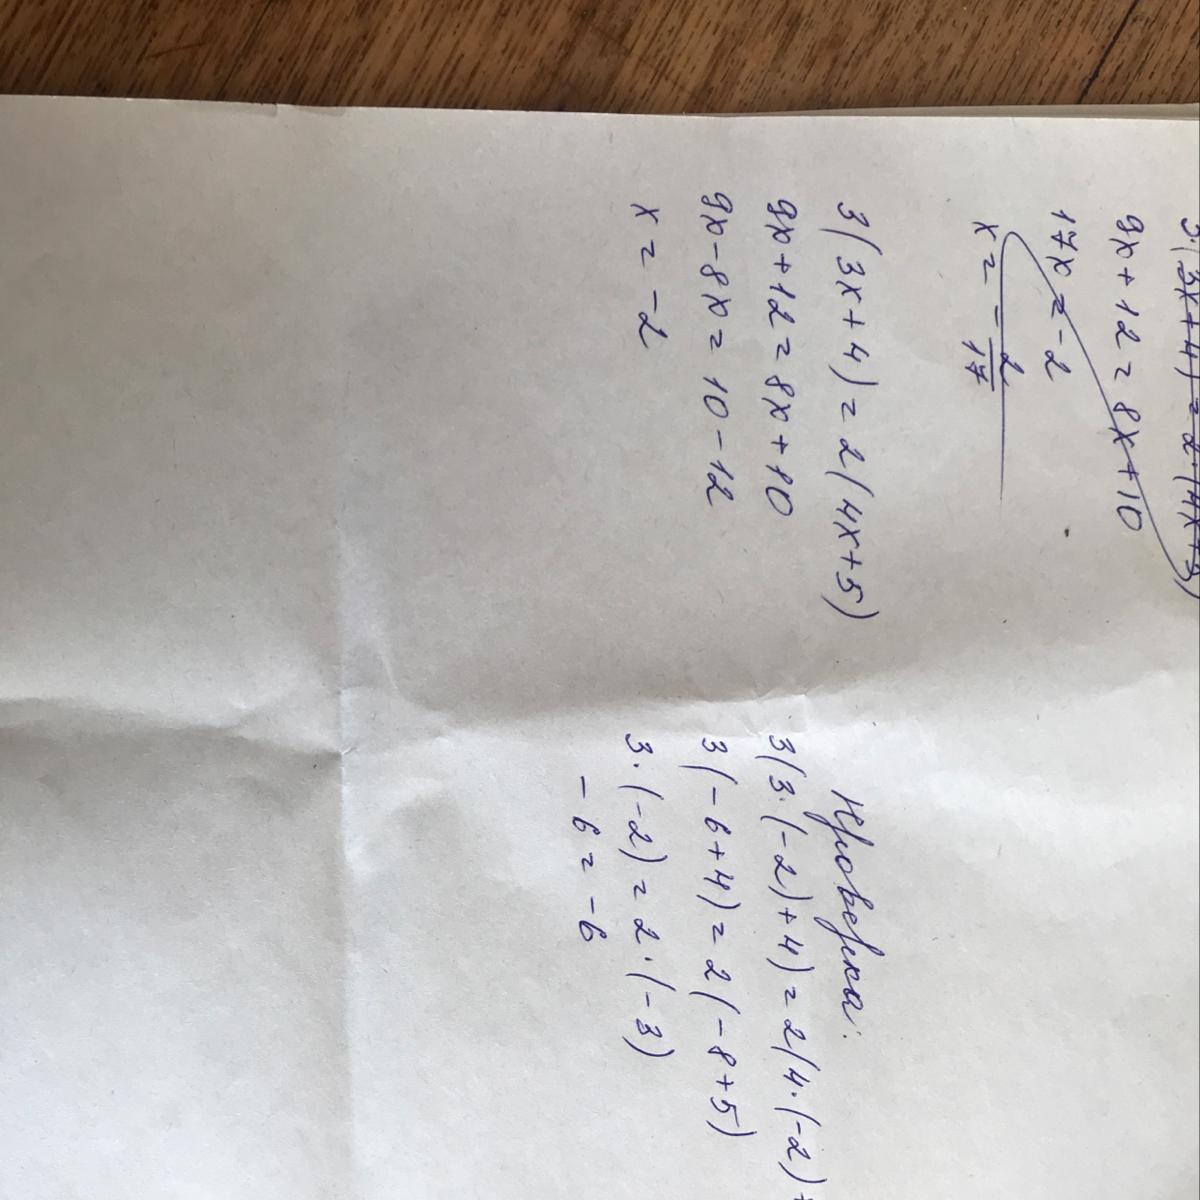 3·(3x+4)=2·(4x+5)
9x+12=8x+10
17x=-2
x=-2/17
3(3x+4)=2(4x+5)
9x+12=8x+10
9x-8x=10-12
x=-2
Проверка:
3(3·(-2)+4)=2(4·(-2)+
3(-6+4)=2(-8+5)
3·(-2)=2·(-3)
-6=-6